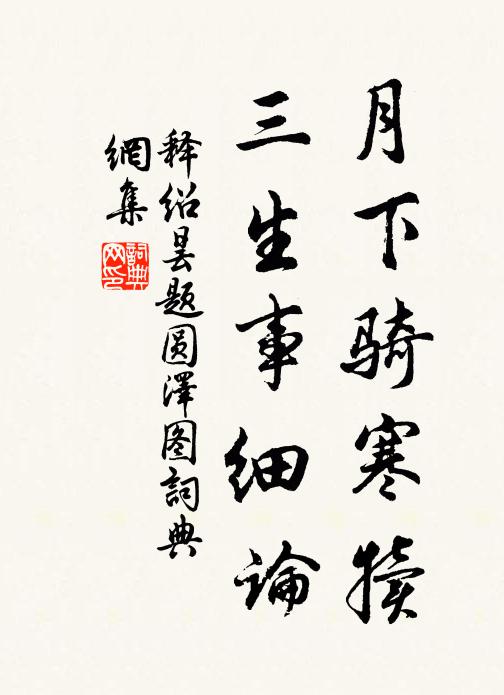 月下骑寒犊
三生事细论
释绍昙题圆澤图詞典
網集
詞典网印